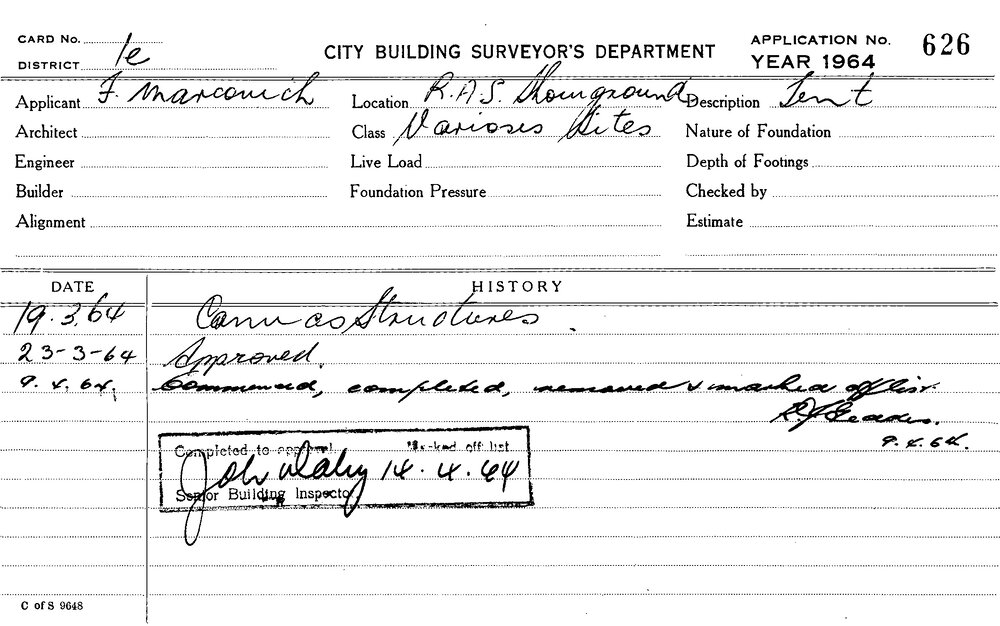 CARD No.
DISTRICT 1e
CITY BUILDING SURVEYOR'S DEPARTMENT
APPLICATION No. 626
YEAR 1964
Applicant F. Marcovich Location R.A.S. Showground Description Tent
Architect Class Various Sites Nature of Foundation
Engineer Live Load Depth of Footings
Builder Foundation Pressure Checked by
Alignment Estimate
DATE HISTORY
19.3.64 Canvas Structures.
23-3-64 Approved.
9.4.64. Commenced, completed, removed & marked off list.
9.4.64.
Completed to approval. Marked off list
John 14.4.64
Senior Building Inspector
C of S 9648